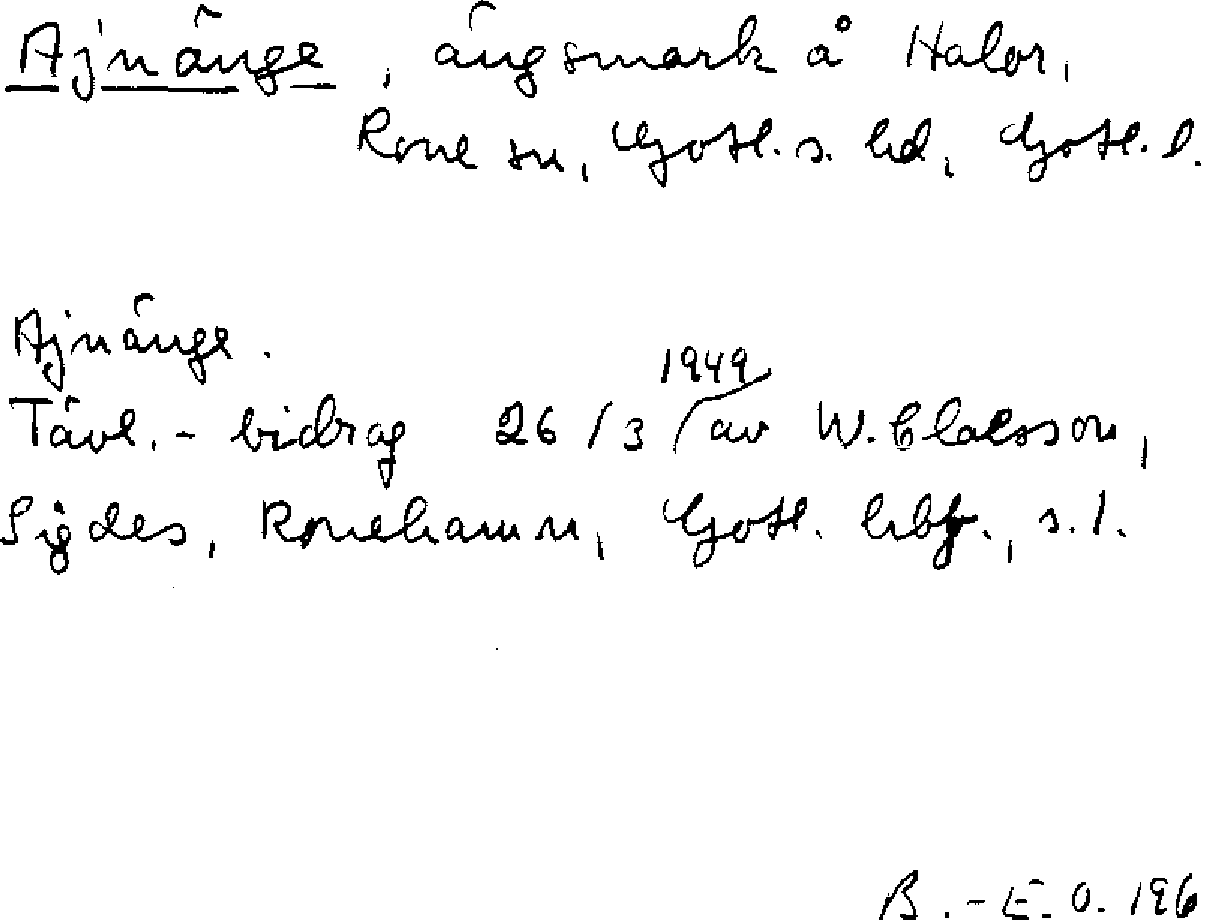 Ajnänge, ängsmark å Halor,
Rone sn, Gotl. s. hd, Gotl. l.
Ajnänge.
Tävl.-bidrag 26/3 1949 av W. Claesson,
Sigdes, Ronehamn, Gotl. hbf., s. 1.
B.-E. O. 196